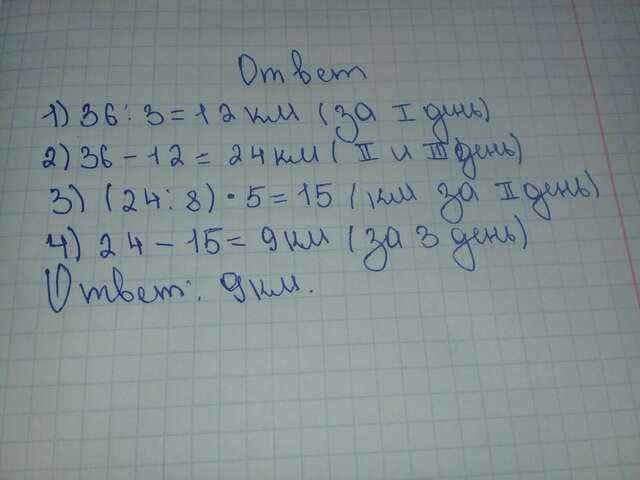 Ответ
1) 36 : 3 = 12 км (за I день)
2) 36 - 12 = 24 км (II и III день)
3) (24 : 8) · 5 = 15 (км за II день)
4) 24 - 15 = 9 км (за 3 день)
Ответ: 9 км.